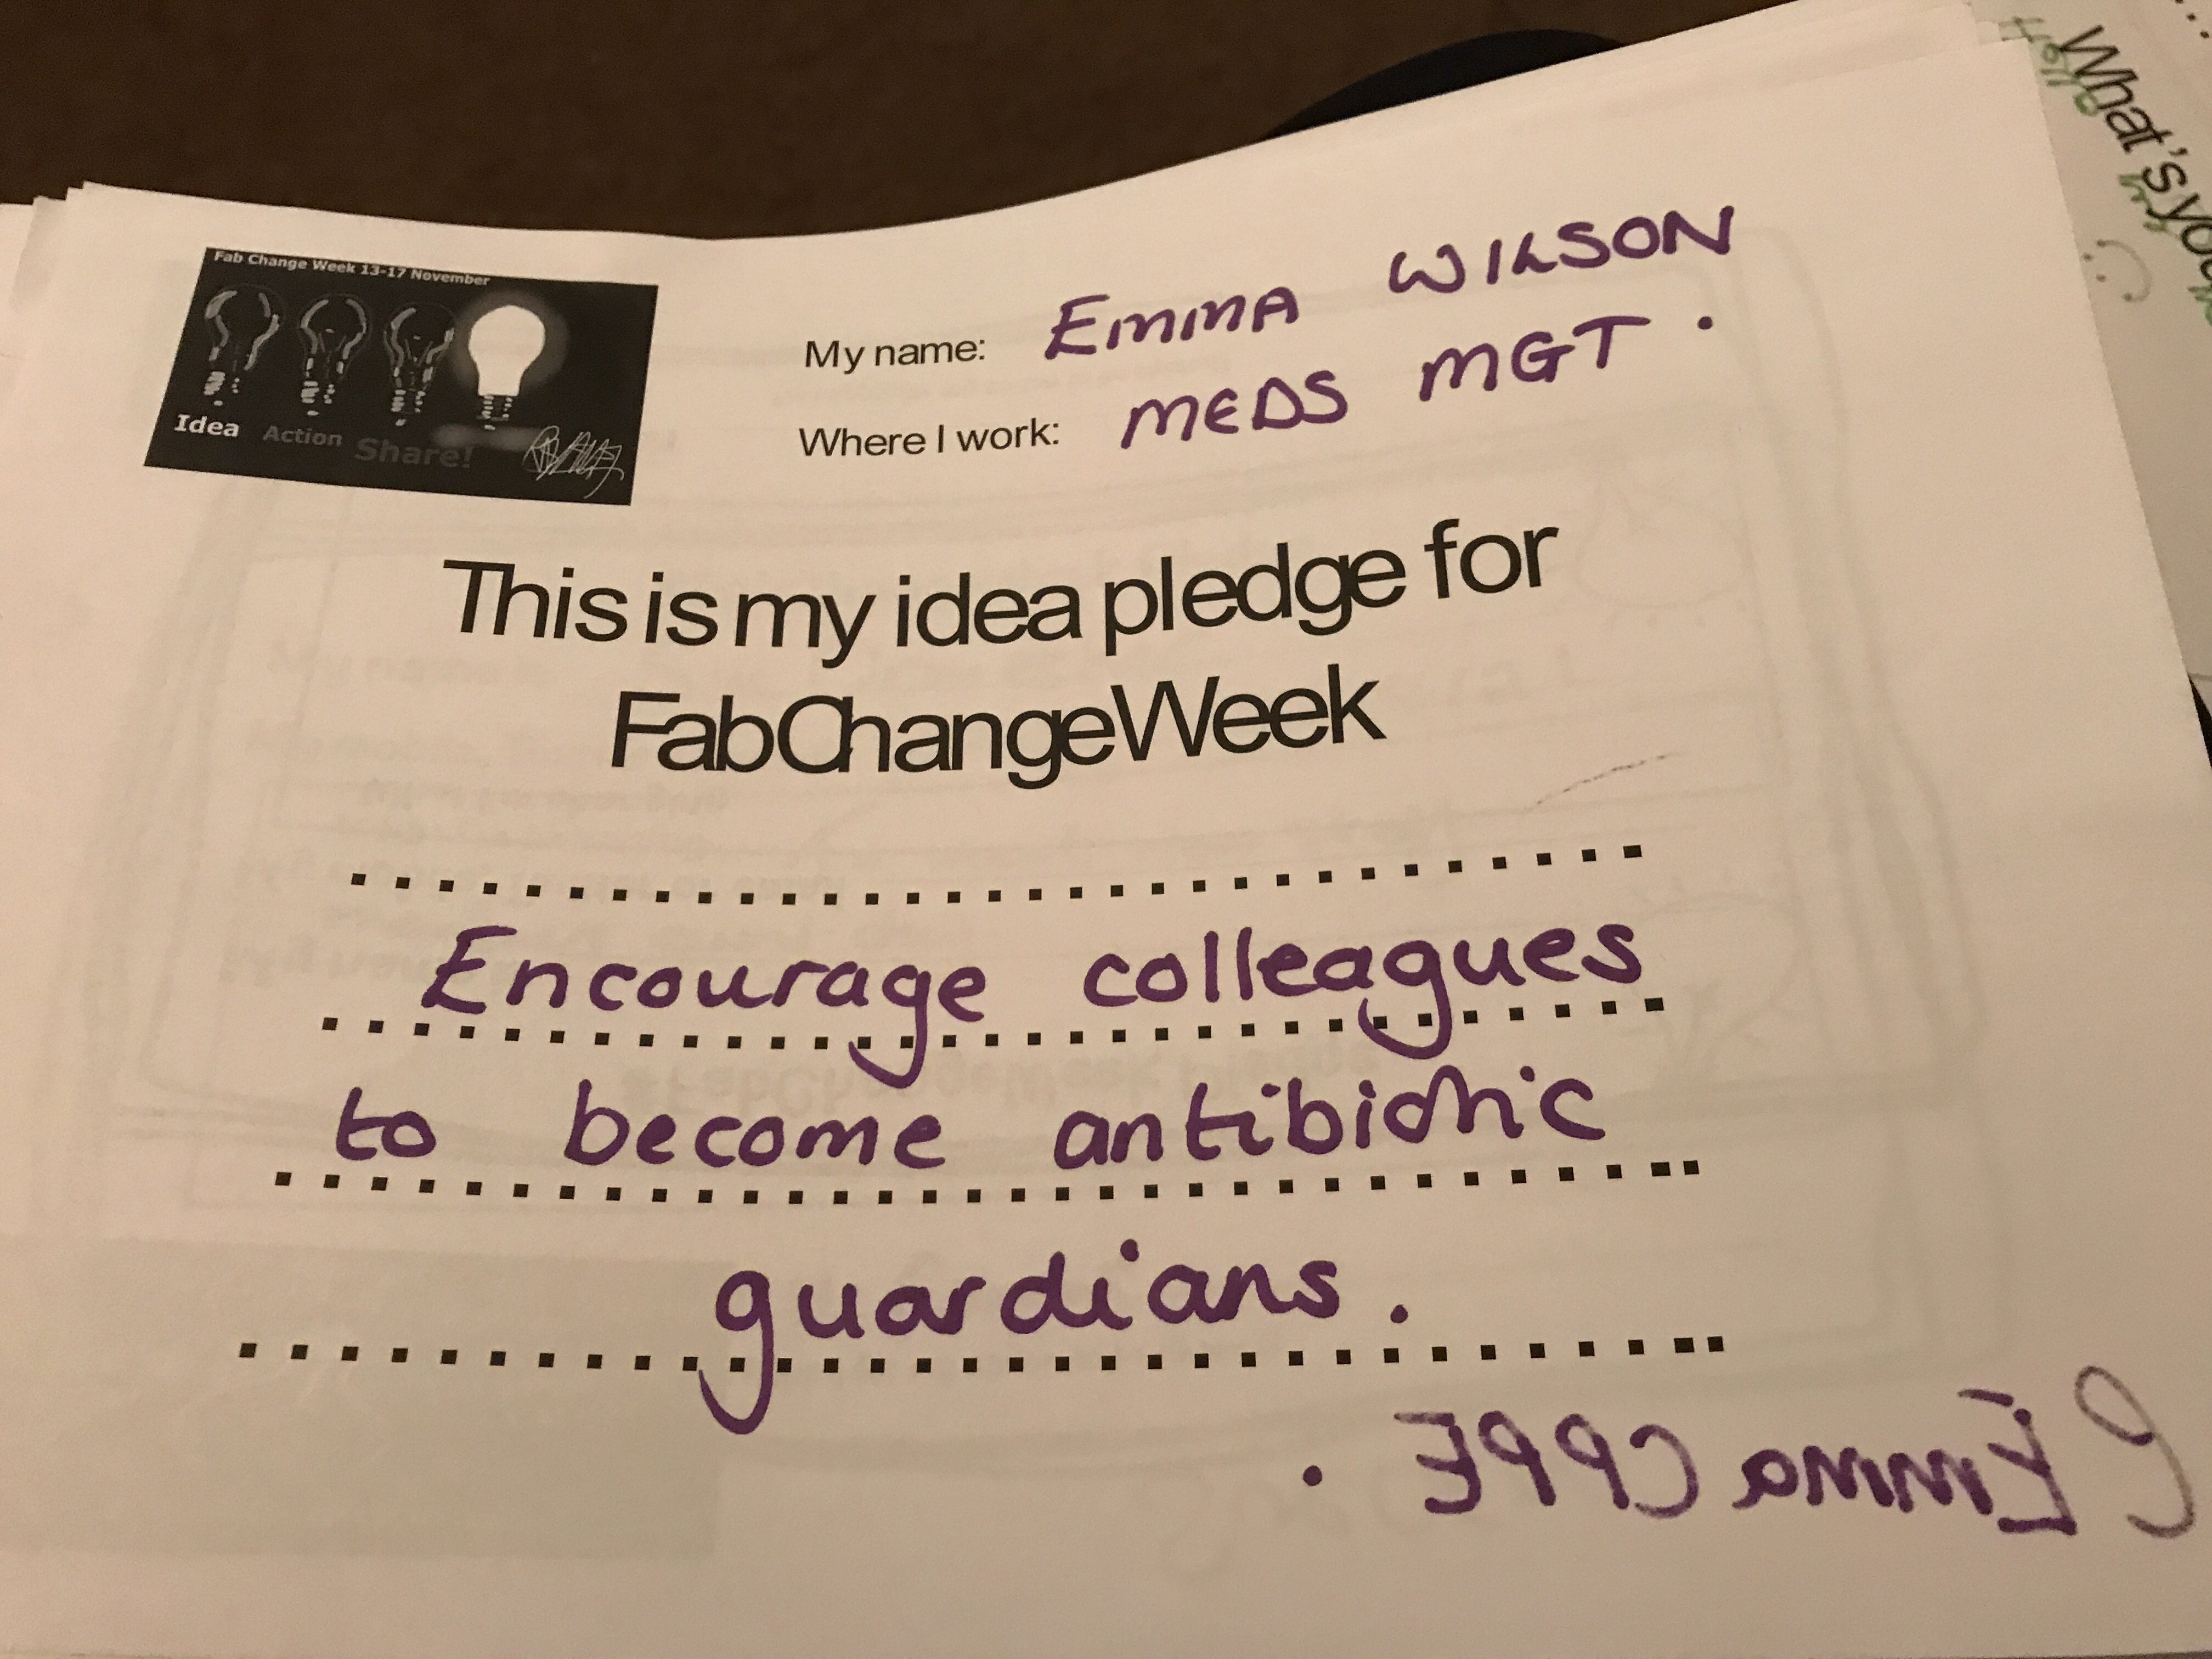 Fab Change Week 13-17 November
Idea Action Share!
My name: EMMA WILSON
Where I work: MEDS MGT.
This is my idea pledge for
FabChangeWeek
Encourage colleagues
to become antibiotic
guardians.
@EmmaCPPE
What's you
Hello